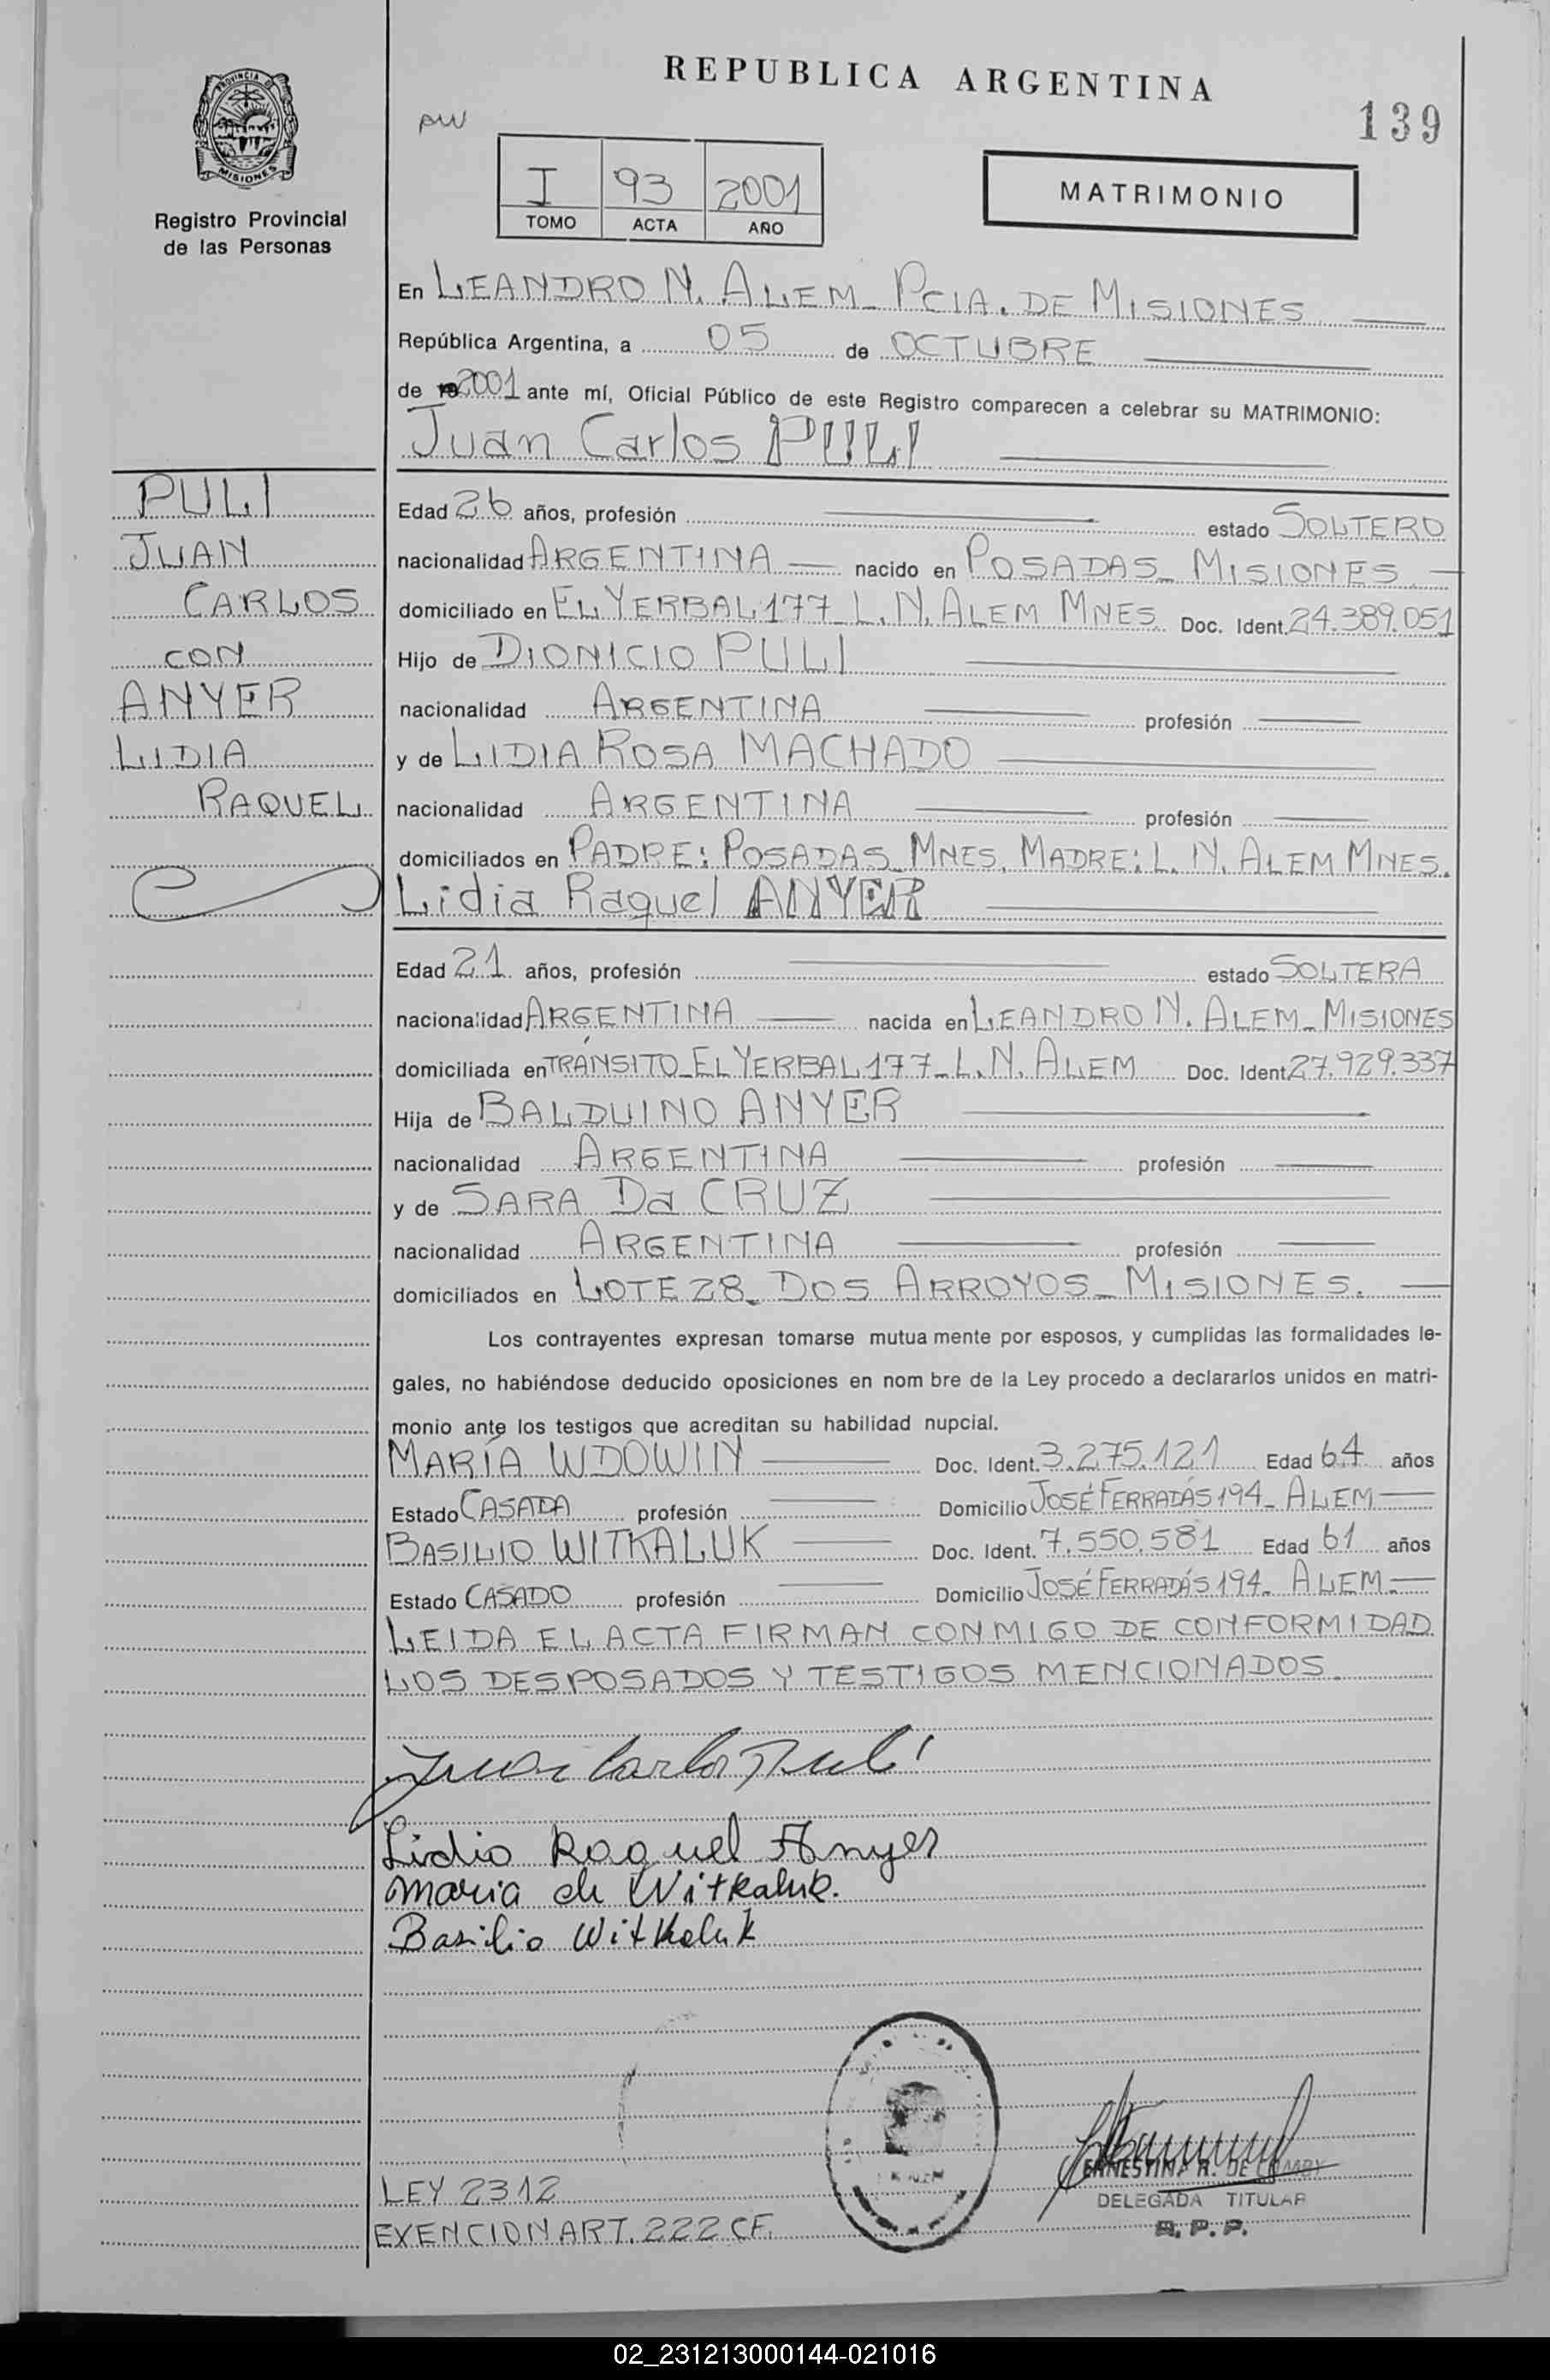 REPUBLICA ARGENTINA
139
PROVINCIA DE
MISIONES
Registro Provincial
de las Personas
I 93 2001
TOMO ACTA AÑO
MATRIMONIO
En LEANDRO N. ALEM_ PCIA. DE MISIONES
República Argentina, a 05 de OCTUBRE
de 2001 ante mí, Oficial Público de este Registro comparecen a celebrar su MATRIMONIO:
Juan Carlos PULI
PULI
JUAN
CARLOS
CON
ANYER
LIDIA
RAQUEL
Edad 26 años, profesión estado SOLTERO
nacionalidad ARGENTINA nacido en POSADAS_ MISIONES
domiciliado en EL YERBAL 177_ L. N. ALEM MNES. Doc. Ident. 24.389.051
Hijo de DIONICIO PULI
nacionalidad ARGENTINA profesión
y de LIDIA ROSA MACHADO
nacionalidad ARGENTINA profesión
domiciliados en PADRE: POSADAS_ MNES. MADRE: L. N. ALEM MNES.
Lidia Raquel ANYER
Edad 21 años, profesión estado SOLTERA
nacionalidad ARGENTINA nacida en LEANDRO N. ALEM_ MISIONES
domiciliada en TRÁNSITO_ EL YERBAL 177_ L. N. ALEM Doc. Ident. 27.929.337
Hija de BALDUINO ANYER
nacionalidad ARGENTINA profesión
y de SARA Da CRUZ
nacionalidad ARGENTINA profesión
domiciliados en LOTE 28_ DOS ARROYOS_ MISIONES.
Los contrayentes expresan tomarse mutua mente por esposos, y cumplidas las formalidades le-
gales, no habiéndose deducido oposiciones en nom bre de la Ley procedo a declararlos unidos en matri-
monio ante los testigos que acreditan su habilidad nupcial.
MARÍA WDOWIN Doc. Ident. 3.275.121 Edad 64 años
Estado CASADA profesión Domicilio JOSÉ FERRADÁS 194_ ALEM
BASILIO WITKALUK Doc. Ident. 7.550.581 Edad 61 años
Estado CASADO profesión Domicilio JOSÉ FERRADÁS 194_ ALEM
LEIDA EL ACTA FIRMAN CONMIGO DE CONFORMIDAD
LOS DESPOSADOS Y TESTIGOS MENCIONADOS.
Juan Carlos Puli
Lidia Raquel Anyer
Maria de Witkaluk.
Basilio Witkaluk
ERNESTINA R. DE
DELEGADA TITULAR
R. P. P.
LEY 2312
EXENCION ART. 222 CF.
02_231213000144-021016